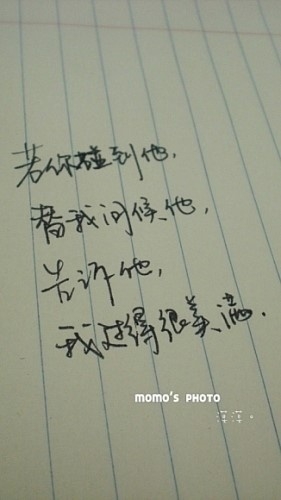 若你碰到他,
替我问候他,
告诉他,
我过得很美满.
momo's PHOTO
洋洋。